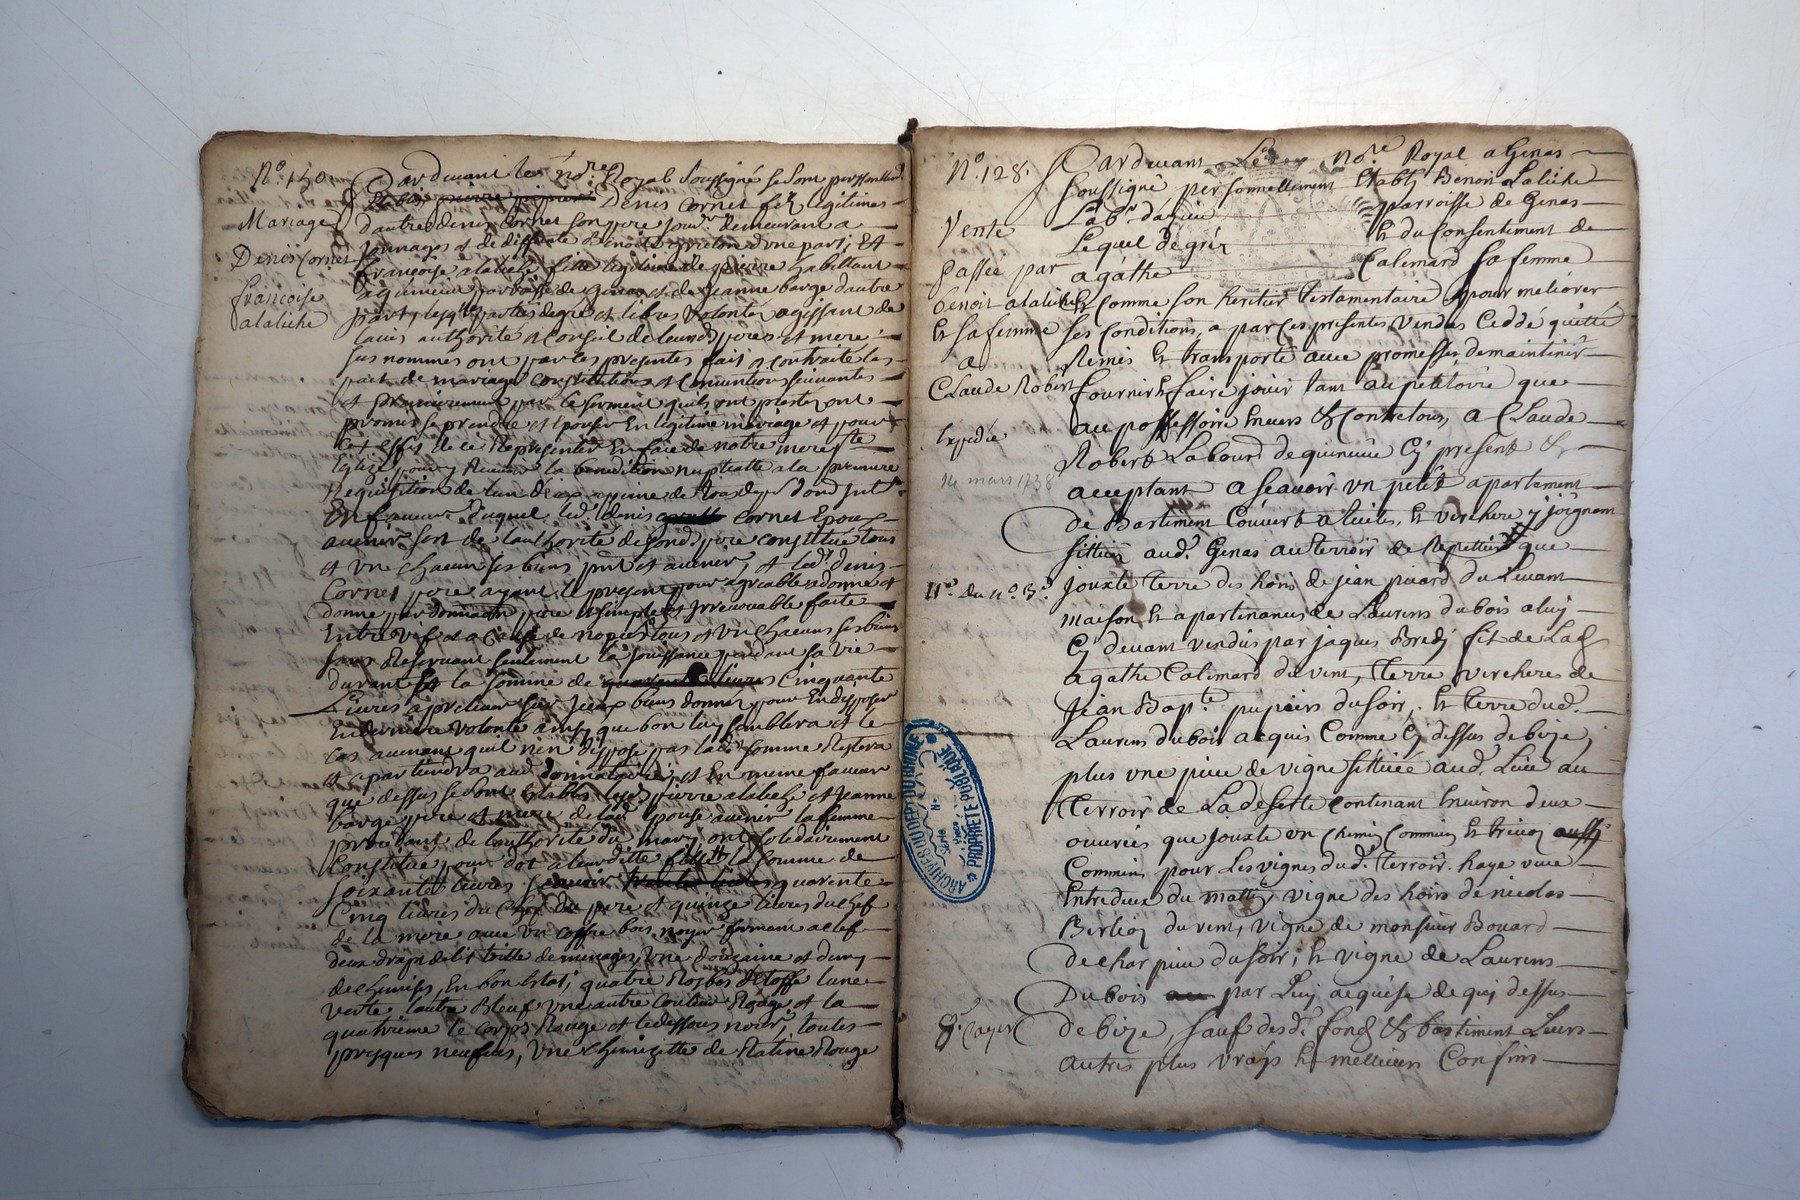 N.º 130
Mariage
Denis Cornet
françoise
alatiche
Pardevant le no.re Royal soussigné se sont
Denis Cornet fils legitime
d'autre denis Cornet son pere jour.r demeurant a
Jonnages et de deffunte Benoite d'une part; Et
françoise alatiche fille legitime de pierre habittant
a quinieux parroisse de genas et de Jeanne barge d'autre
part, lesq.lles parties de gré et libres volontez agissant de
lauis authorité et Conseil de leursd. peres et mere
sus nommés ont par ces presentes fait et contraité les
pact de mariage constitution et Conventions suivantes
et premierement par le serment quils ont prestez ont
promis se prendre et Epouser En legitime mariage et pour
cet effet de ce Representer En face de notre mere s.te
Eglise pour y Recevoir la benediction nuptialle a la premiere
Requisition de lun deux a peine de tous
En faveur duquel led. denis cornet Epoux
avenir sont de lauthorité de sond. pere constitue tous
et vn chacun ses biens p.nt et avenir, et led. denis
Cornet pere ayant le present pour agreable a donné et
donne par donnation pure et simple et Irrevocable faite
Entre vifs et a Cause de nopces tous et vn chacuns ses biens
sans Reservant seulement la Jouissance pendant sa vie
durant et la somme de quarente livres Cinquante
Livres a prelever sur Iceux biens donnés pour En disposer
En derniere volonté ainsy que bon luy semblera et le
cas avenant quil nen dispose pas lad. somme Restera
et apartiendra aud. donnataire; et En meme faveur
que dessus se sont Etablis lesd. pierre alatiche et Jeanne
barge pere et mere de lad. Epouse avenir la femme
procedant de lauthorité du mary ont solidairement
Constitué pour dot a leurditte fille la somme de
soixante livres scavoir quarente
Cinq livres du Chef du pere et quinze livres du chef
de la mere avec vn coffre bois noyer fermant a clef
deux draps de lit toille de menages, vne douzaine et demy
de chemises, En bon Estat; quatre Robes d'Etoffe lune
verte lautre Bleuf vne autre couleur Rouge et la
quatrieme le corps Rouge et le dessous noir, toutes
presques neufves, Vne chemizette de Ratine Rouge
N.º 128.
Vente
passée par
benoit alatiche
Et sa femme
a
Claude Robert
Expedie
14 mars 1738
Pardevant Le no.re Royal a Genas
soussigné personnellement Etably Benoit Latiche
Lab.r parroisse de Genas
Lequel de gré Et du Consentiment de
agathe Calimard sa femme
Et comme son heritier testamentaire pour meliorer
ses conditions, a par ces presentes Vendu Ceddé quitté
Remis Et transporté avec promesses de maintenir
fournir Et faire jouir tant au petitoire que
au possessoire Envers & Contre tous, a Claude
Robert Labour.d de quinieux Cy present &
acceptant a scavoir vn petit apartement
de Bastiment Couvert a tuiles, Et verchere y joignant
sittué aud. Genas au terroir de que
jouxte terre des hoirs de jean picard du Levant
maison Et apartenances de Laurens dubois a luy
Cy devant vendus par jaques Bredy fils de Lad.
agathe Calimard du vent, terre vercheres de
jean Bap.te du soir, Et terre dud.
Laurens dubois acquis Comme Cy dessus de bize,
plus vne piece de vigne sittuée aud. Lieu au
Terroir de La deserte contenant Environ deux
ouvrées que jouxte vn chemin Commun
Commun pour les vignes dud. terroir. haye vive
Entredeux du mattin, vigne des hoirs de nicolas
du vent, vigne de monsieur Bouard
de charpieu du soir, Et vigne de Laurens
Dubois par Luy acquise de que dessus
de bize, sauf desd. fond & bastiment Leurs
autres plus vrays Et meilleurs Confins
ARCHIVES DU DEP. DU RHÔNE
PROPRIÉTÉ PUBLIQUE